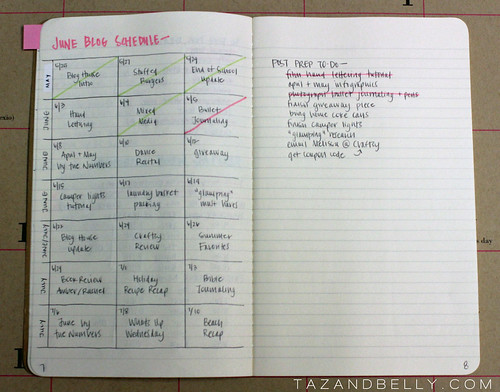 JUNE BLOG SCHEDULE—
MAY
5/25
Blog House
Intro
5/27
Stuffed
Burgers
5/29
End of School
Update
JUNE
Hand
Lettering
6/4
Mixed
Media
6/5
Bullet
Journaling
JUNE
6/8
April + May
by the Numbers
6/10
Dance
Recital
6/12
giveaway
JUNE
6/15
Camper Lights
tutorial
6/17
laundry basket
packing
6/19
"glamping"
must haves
6/22
Blog House
update
6/24
Craftsy
Review
6/26
Summer
Favorites
6/29
Book Review
7/1
Holiday
Recipe Recap
7/3
Bible
Journaling
7/6
June by
the Numbers
7/8
Whats Up
Wednesday
7/10
Beach
Recap
7
POST PREP TO-DO—
film hand lettering tutorial
april + may infographics
photograph bullet journaling + pens
finish giveaway piece
bring home core cans
finish camper lights
"glamping" research
email Melissa @ Craftsy
get coupon code
8
TAZANDBELLY.COM